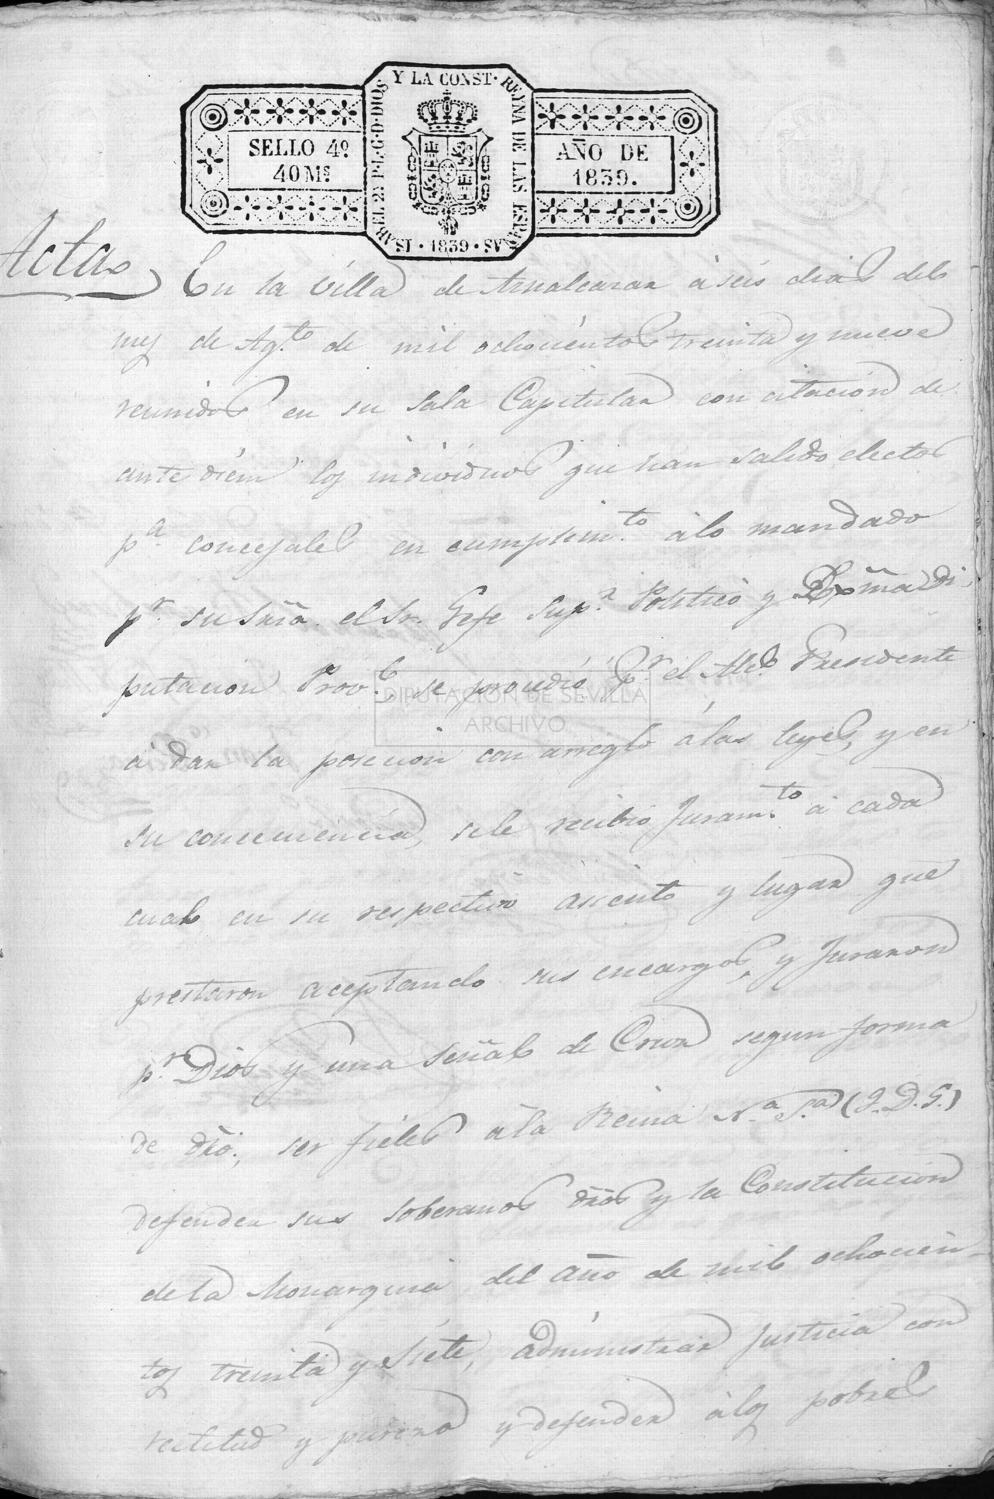 SELLO 4º
40 Ms
ISABEL 2ª P. L. G. D. DIOS Y LA CONST. REYNA DE LAS ESPAÑAS
· 1839 ·
AÑO DE
1839.
Acta
En la villa de Aznalcazar à seis dias del
mes de Agto de mil ochocientos treinta y nueve
reunidos en su Sala Capitular con citacion de
ante diem los individuos que han salido electos
pa concejales en cumplimto à lo mandado
pr su Sria el Sr. Gefe Supr Politico y Di
putacion Provl se procedió pr el Alce Presidente
à dar la posicion con arreglo à las leyes, y en
su consecuencia, se le recibio Juramto à cada
cual en su respectivo asiento y lugar que
prestaron aceptando sus encargos, y Juraron
pr Dios y una señal de Cruz segun forma
de dro., ser fieles à la Reina Na Sa (Q.D.G.)
defender sus soberanos dros y la Constitucion
de la Monarquia del año de mil ochocien-
tos treinta y siete, administrar Justicia con
rectitud y pureza y defender à los pobres
DIPUTACIÓN DE SEVILLA
ARCHIVO